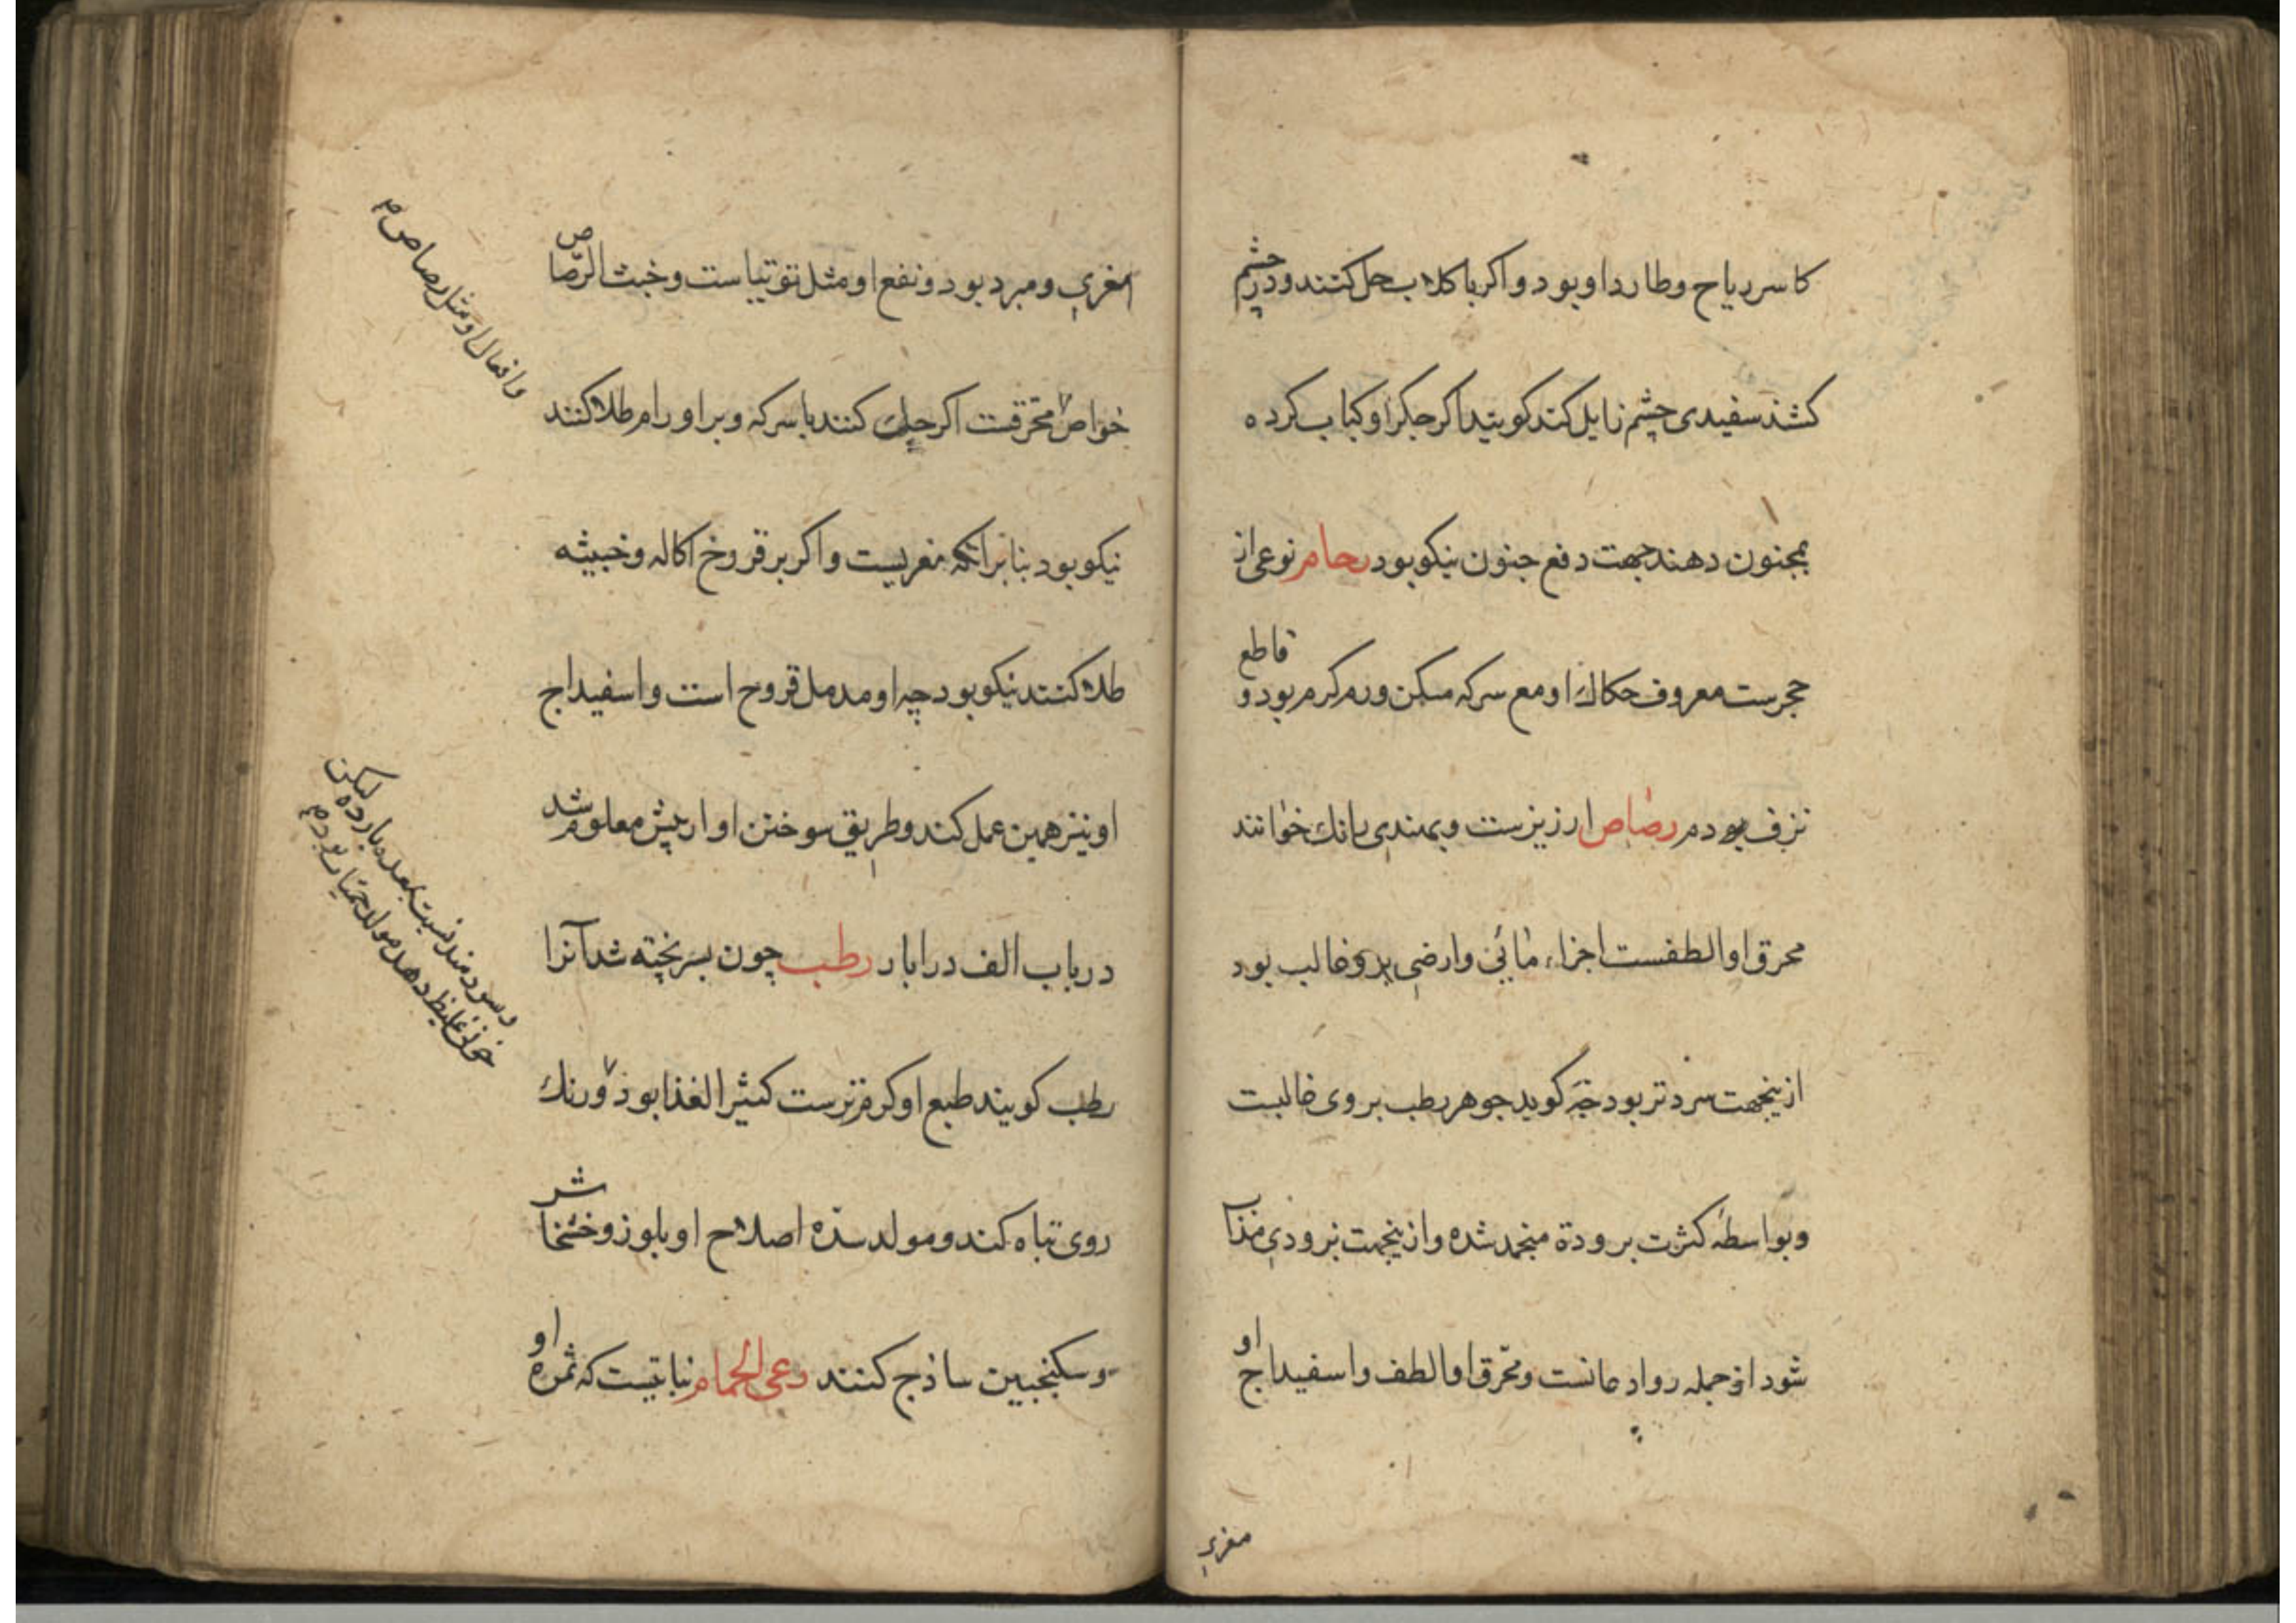 کاسر ریاح و طارد او بود و اکر با کلاب حل کنند و در چشم
کشند سفیدی چشم زایل کند کویند اکر جکر او کباب کرده
بمجنون دهند جهت دفع جنون نیکو بود رخام نوعی از
حجرست معروف حکاک او مع سرکه مسکن ورم کرم بود و قاطع
نزف بود رصاص ارزیزست و بهندی رانک خوانند
محرق او الطفست اجزاء مائی و ارضی برو غالب بود
ازینجهت سردتر بود جه کوید جوهر رطب بر وی غالبست
و بواسطه کثرت برودة منجمد شده و ازینجهت بزودی مذاب
شود او جمله روادعانست و محرق او الطف و اسفیداج او
مغری
مغری و مبرد بود و نفع او مثل توتیاست و خبث الرصاص
خواص محرقت اکر حک کنند با سرکه و بر اورام طلا کنند
نیکو بود بنابر انکه مغریست و اکر بر قروح اکاله و خبیثه
طلا کنند نیکو بود چه او مدمل قروح است و اسفیداج
او نیز همین عمل کند و طریق سوختن او از پیش معلوم شد
در باب الف در ابار رطب چون بسر پخته شد آنرا
رطب کویند طبع او کرمترست کثیر الغذا بود و رنک
روی تباه کند و مولد سده اصلاح او بلوز و خشخاش
و سکنجبین ساذج کنند رعی الحمام نباتیست که ثمره او
و افعال او مثل رصاص
و سودمند نسبت بمعده بارده لیکن
خونی غلیظ دهد مولد حمیات بود